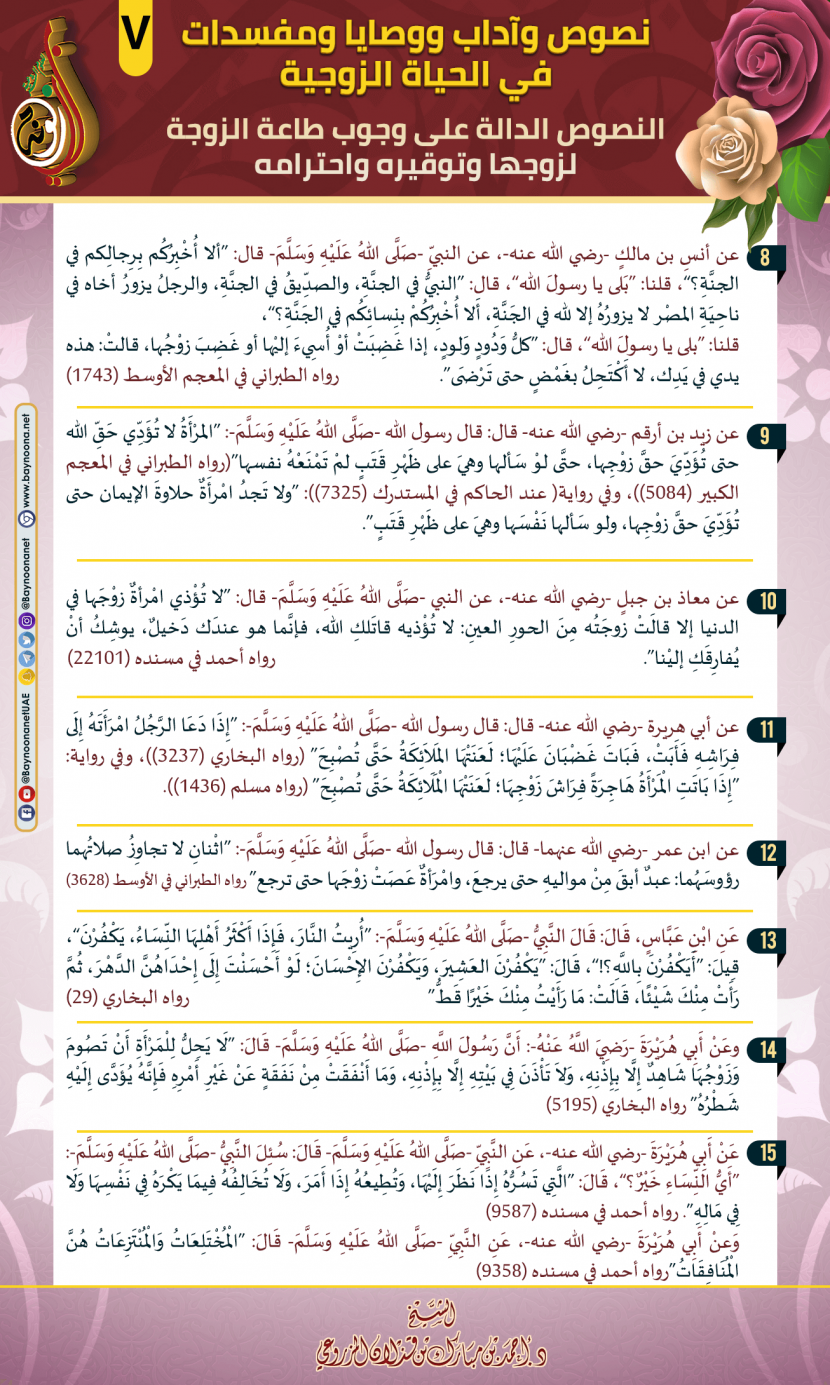 نصوص وآداب ووصايا ومفسدات
في الحياة الزوجية
٧
النصوص الدالة على وجوب طاعة الزوجة
لزوجها وتوقيره واحترامه
8
عن أنسِ بن مالكٍ -رضي الله عنه-، عن النبيّ -صَلَّى اللهُ عَلَيْهِ وَسَلَّمَ- قال: "ألا أُخْبِرُكُم بِرِجالِكم في
الجنَّةِ؟"، قلنا: "بَلى يا رسولَ الله"، قال: "النبيُّ في الجنَّةِ، والصدِّيقُ في الجنَّةِ، والرجلُ يزورُ أخاه في
ناحِيَةِ المصْر لا يزورُهُ إلا لله في الجَنَّة، أَلا أُخْبِرُكُمْ بنِسائِكُم في الجَنَّةِ؟"،
قلنا: "بلى يا رسولَ الله"، قال: "كلُّ وَدُودٍ وَلودٍ، إذا غَضِبَتْ أوْ أُسيءَ إليْها أو غَضِبَ زوْجُها، قالتْ: هذه
يدي في يَدِك، لا أكْتَحِلُ بغَمْضٍ حتى تَرْضَى". رواه الطبراني في المعجم الأوسط (1743)
9
عن زيد بن أرقم -رضي الله عنه- قال: قال رسول الله -صَلَّى اللهُ عَلَيْهِ وَسَلَّمَ-: "المرْأَةُ لا تُؤَدِّي حَقّ الله
حتى تُؤَدِّيَ حقَّ زوْجِها، حتَّى لوْ سَألها وهيَ على ظَهْرِ قَتَبٍ لمْ تَمْنَعْهُ نفسها"(رواه الطبراني في المعجم
الكبير (5084))، وفي رواية( عند الحاكم في المستدرك (7325)): "ولا تَجدُ امْرأَةٌ حلاوةَ الإيمان حتى
تُؤَدِّيَ حقَّ زوْجِها، ولو سَألها نَفْسَها وهيَ على ظَهْرِ قَتَبٍ".
10
عن معاذ بن جبلٍ -رضي الله عنه-، عن النبي -صَلَّى اللهُ عَلَيْهِ وَسَلَّمَ- قال: "لا تُؤْذي امْرأةٌ زوْجَها في
الدنيا إلا قالَتْ زوجَتُه مِنَ الحورِ العينِ: لا تُؤْذيه قاتَلكِ الله، فإنَّما هو عندَك دَخيلٌ، يوشِكُ أنْ
يُفارِقَكِ إليْنا". رواه أحمد في مسنده (22101)
11
عن أبي هريرة -رضي الله عنه- قال: قال رسول الله -صَلَّى اللهُ عَلَيْهِ وَسَلَّمَ-: "إِذَا دَعَا الرَّجُلُ امْرَأَتَهُ إِلَى
فِرَاشِهِ فَأَبَتْ، فَبَاتَ غَضْبَانَ عَلَيْهَا؛ لَعَنَتْهَا المَلَائِكَةُ حَتَّى تُصْبِحَ" (رواه البخاري (3237))، وفي رواية:
"إِذَا بَاتَتِ الْمَرْأَةُ هَاجِرَةً فِرَاشَ زَوْجِهَا؛ لَعَنَتْهَا الْمَلَائِكَةُ حَتَّى تُصْبِحَ" (رواه مسلم (1436)).
12
عن ابن عمر -رضي الله عنهما- قال: قال رسول الله -صَلَّى اللهُ عَلَيْهِ وَسَلَّمَ-: "اثْنانِ لا تجاوِزُ صلاتُهما
رؤوسَهُما: عبدٌ أبقَ مِنْ مواليهِ حتى يرجعَ، وامْرأةٌ عَصَتْ زوْجَها حتى ترجع" رواه الطبراني في الأوسط (3628)
13
عَن ابْنِ عَبَّاسٍ، قَالَ: قَالَ النَّبِيُّ -صَلَّى اللهُ عَلَيْهِ وَسَلَّمَ-: "أُرِيتُ النَّارَ، فَإِذَا أَكْثَرُ أَهْلِهَا النِّسَاءُ، يَكْفُرْنَ"،
قِيلَ: "أَيَكْفُرْنَ بِاللَّهِ؟!"، قَالَ: "يَكْفُرْنَ العَشِيرَ، وَيَكْفُرْنَ الإِحْسَانَ؛ لَوْ أَحْسَنْتَ إِلَى إِحْدَاهُنَّ الدَّهْرَ، ثُمَّ
رَأَتْ مِنْكَ شَيْئًا، قَالَتْ: مَا رَأَيْتُ مِنْكَ خَيْرًا قَطُّ" رواه البخاري (29)
14
وعَنْ أَبِي هُرَيْرَةَ -رَضِيَ اللَّهُ عَنْهُ-: أَنَّ رَسُولَ اللَّهِ -صَلَّى اللهُ عَلَيْهِ وَسَلَّمَ- قَالَ: "لَا يَحِلُّ لِلْمَرْأَةِ أَنْ تَصُومَ
وَزَوْجُهَا شَاهِدٌ إِلَّا بِإِذْنِهِ، وَلاَ تَأْذَنَ فِي بَيْتِهِ إِلَّا بِإِذْنِهِ، وَمَا أَنْفَقَتْ مِنْ نَفَقَةٍ عَنْ غَيْرِ أَمْرِهِ فَإِنَّهُ يُؤَدَّى إِلَيْهِ
شَطْرُهُ" رواه البخاري (5195)
15
عَنْ أَبِي هُرَيْرَةَ -رضي الله عنه-، عَنِ النَّبِيّ -صَلَّى اللهُ عَلَيْهِ وَسَلَّمَ- قَالَ: سُئِلَ النَّبِيُّ -صَلَّى اللهُ عَلَيْهِ وَسَلَّمَ-:
"أَيُّ النِّسَاءِ خَيْرٌ؟"، قَالَ: "الَّتِي تَسُرُّهُ إِذَا نَظَرَ إِلَيْهَا، وَتُطِيعُهُ إِذَا أَمَرَ، وَلَا تُخَالِفُهُ فِيمَا يَكْرَهُ فِي نَفْسِهَا وَلَا
فِي مَالِهِ". رواه أحمد في مسنده (9587)
وَعنْ أَبِي هُرَيْرَةَ -رضي الله عنه-، عَنِ النَّبِيِّ -صَلَّى اللهُ عَلَيْهِ وَسَلَّمَ- قَالَ: "الْمُخْتَلِعَاتُ وَالْمُنْتَزِعَاتُ هُنَّ
الْمُنَافِقَاتُ"رواه أحمد في مسنده (9358)
الشيخ
د. أحمد بن مبارك بن قذلان المزروعي
@BaynoonanetUAE
@Baynoonanet
www.baynoona.net